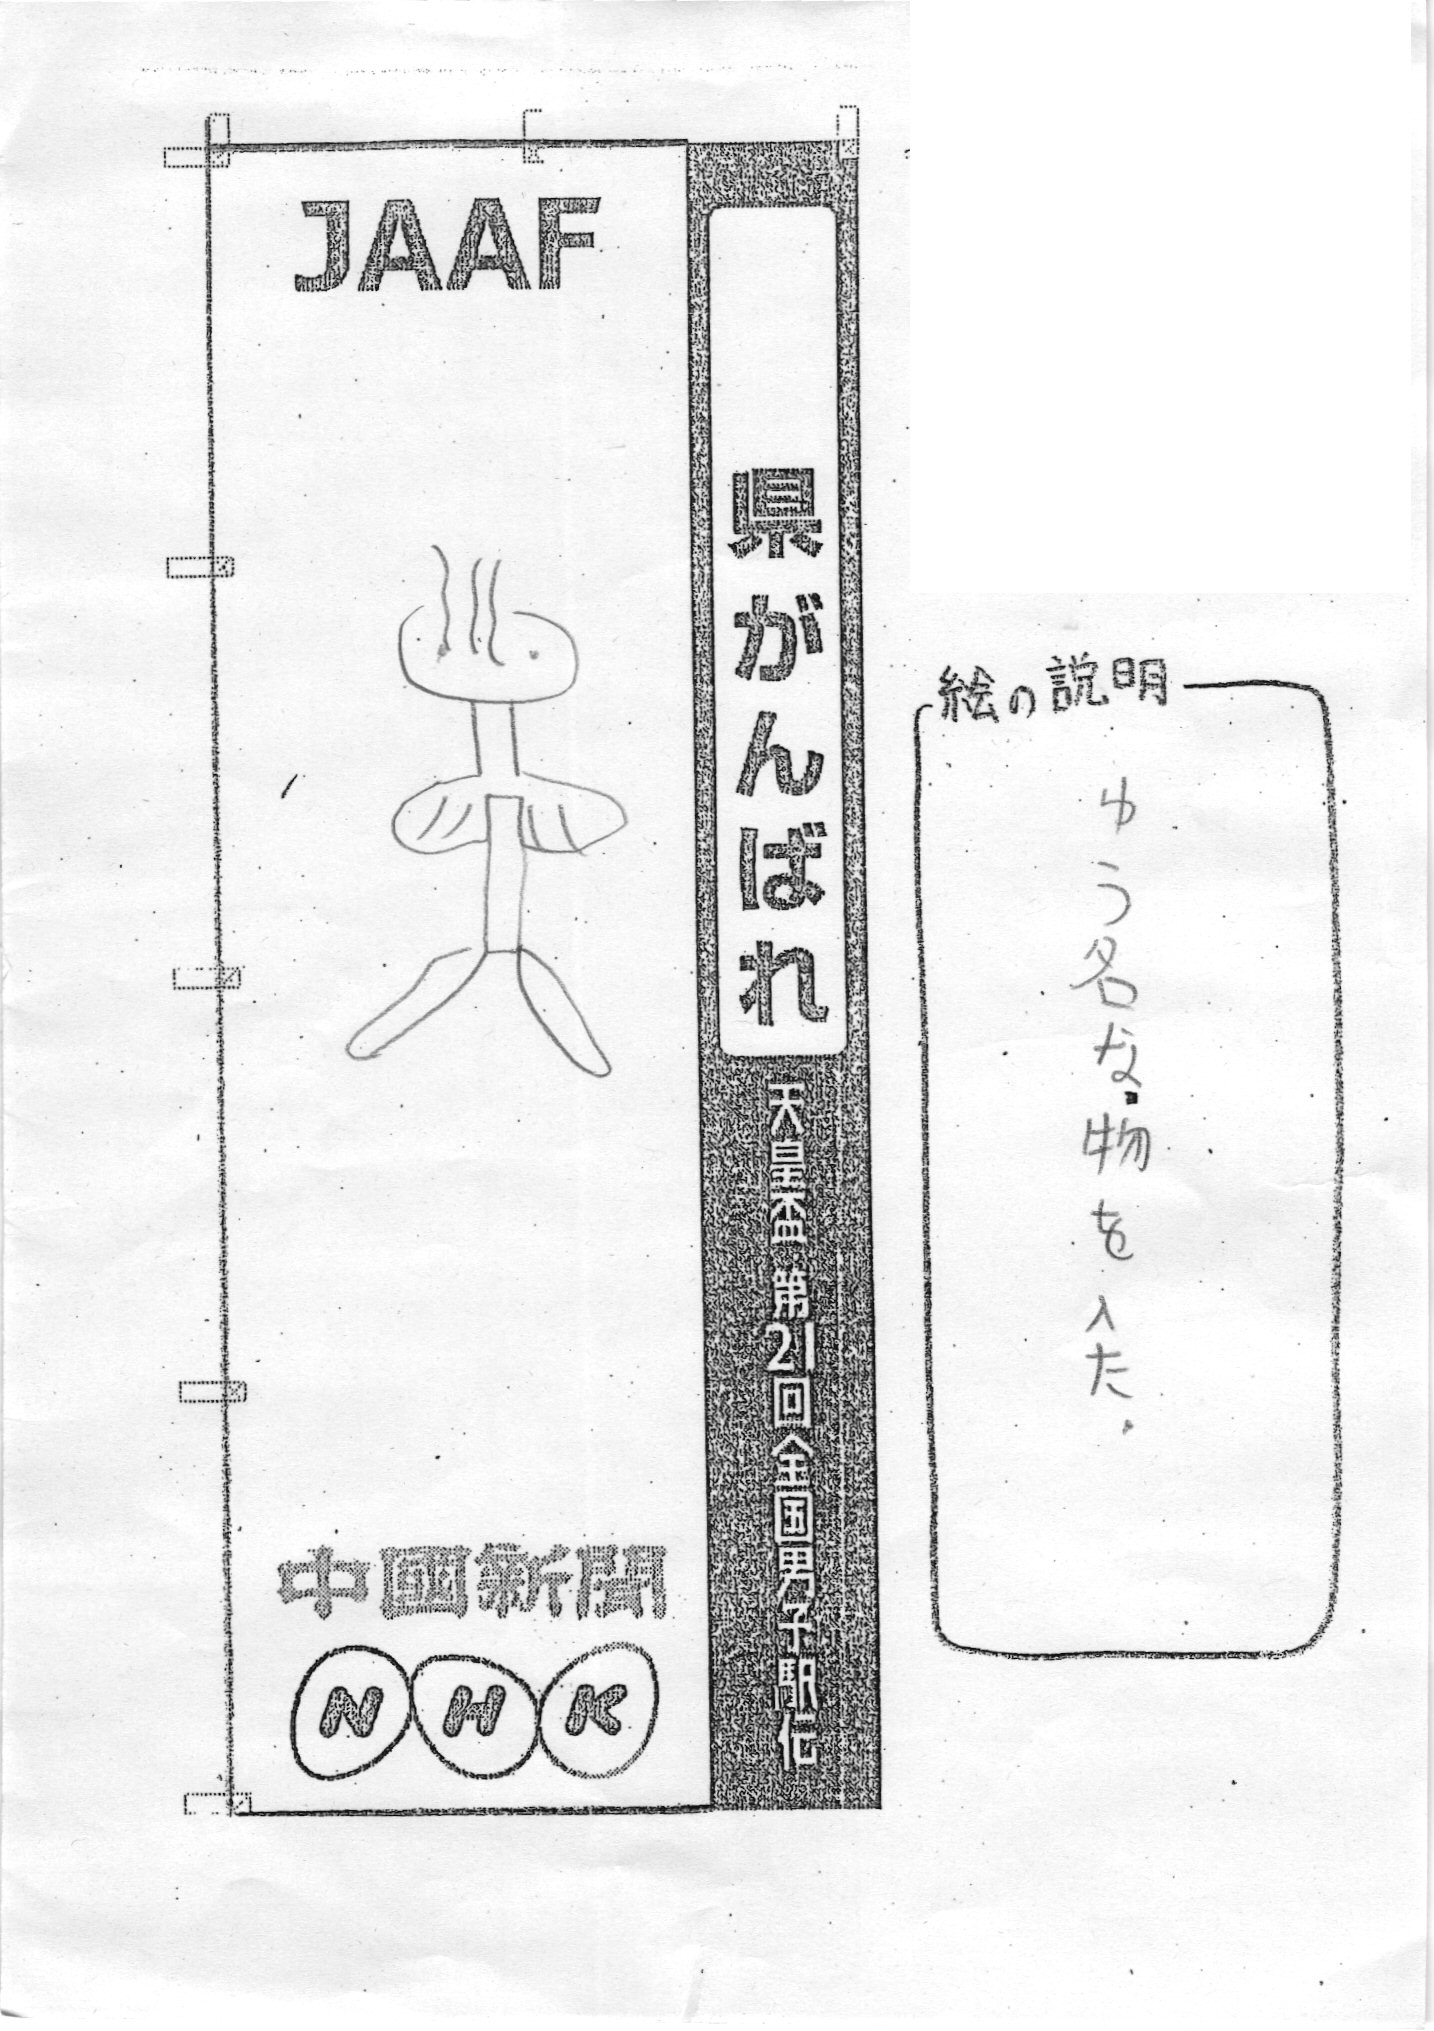 JAAF
県がんばれ
天皇杯 第21回全国男子駅伝
中國新聞
NHK
絵の説明
ゆう名な物を入た。